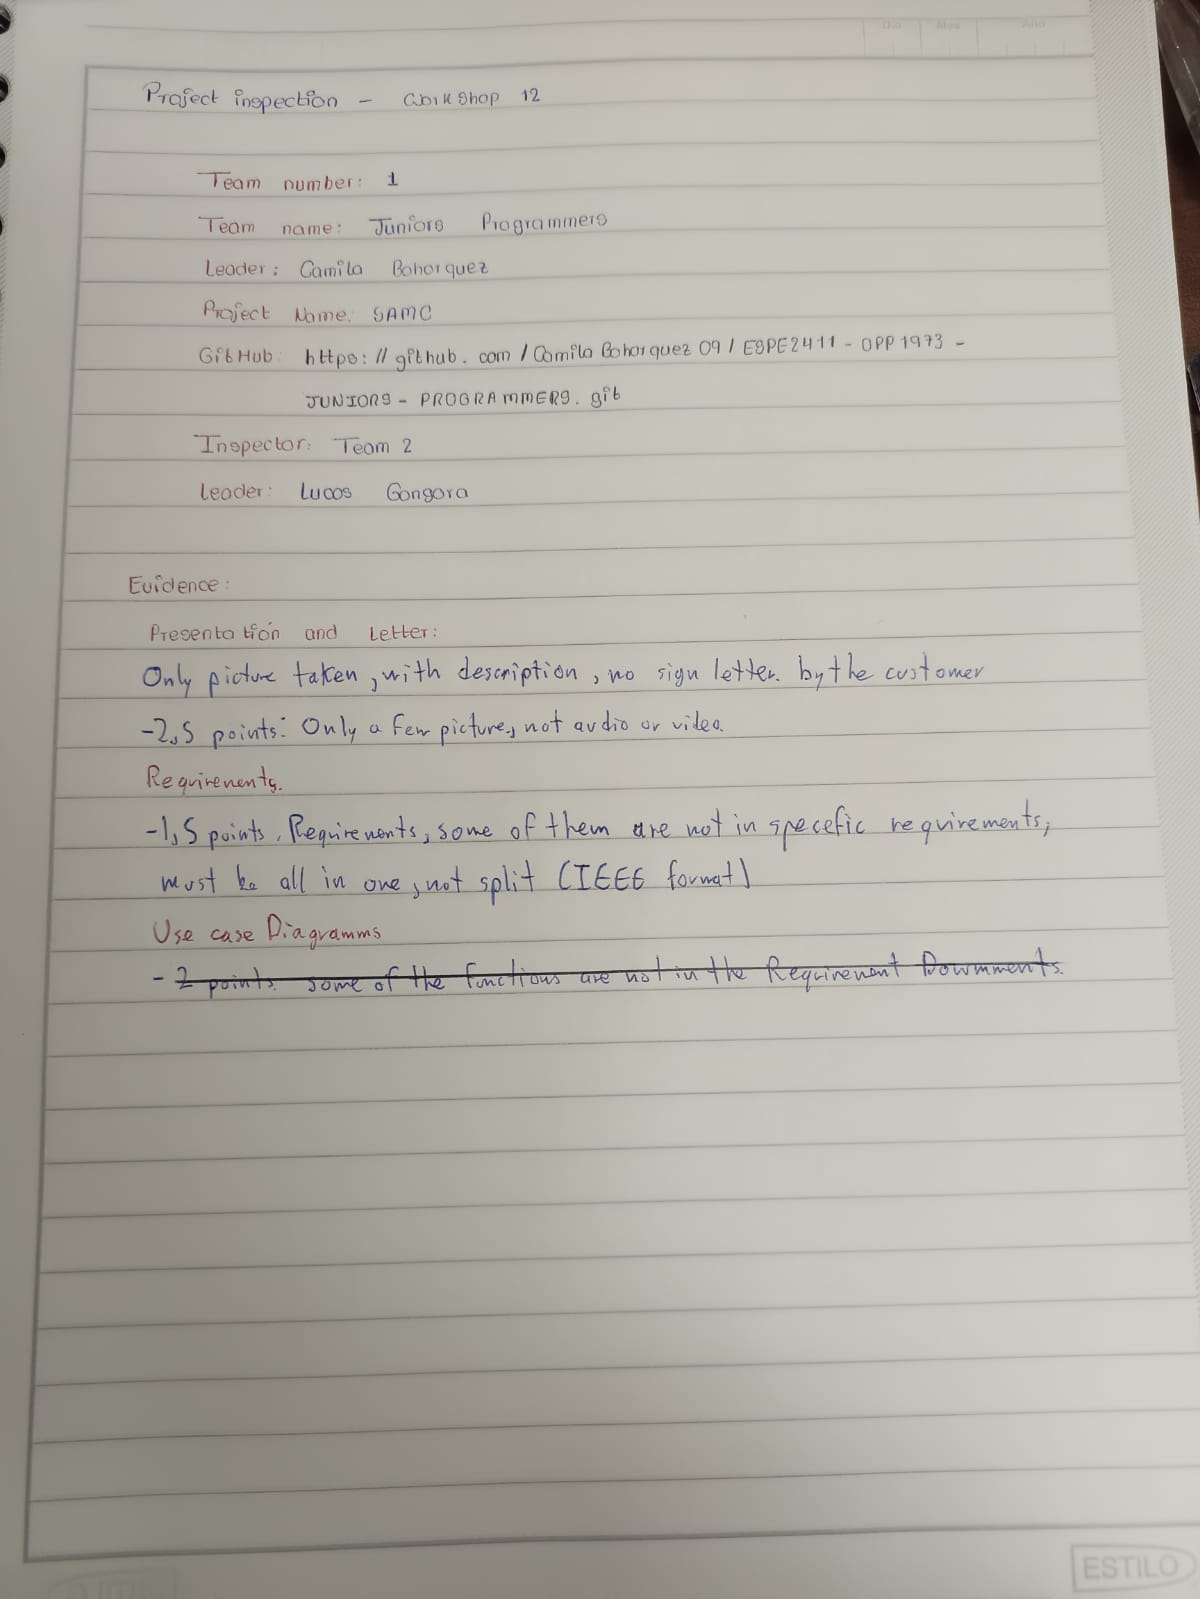 Dia Mes Año
Project inspection - Workshop 12
Team number: 1
Team name: Juniors Programmers
Leader: Camila Bohorquez
Project Name: SAMC
GitHub: https://github.com/CamilaBohorquez09/ESPE2411-OPP1973-
JUNIORS-PROGRAMMERS.git
Inspector: Team 2
Leader: Lucas Gongora
Evidence:
Presentation and Letter:
Only picture taken, with description, no sign letter. by the customer
-2,5 points: Only a few picture, not audio or video.
Requirements.
-1,5 points. Requirements, some of them are not in specefic requirements,
must be all in one, not split (IEEE format)
Use case Diagramms
- 2 points. some of the functions are not in the Requirement Dowmments.
ESTILO